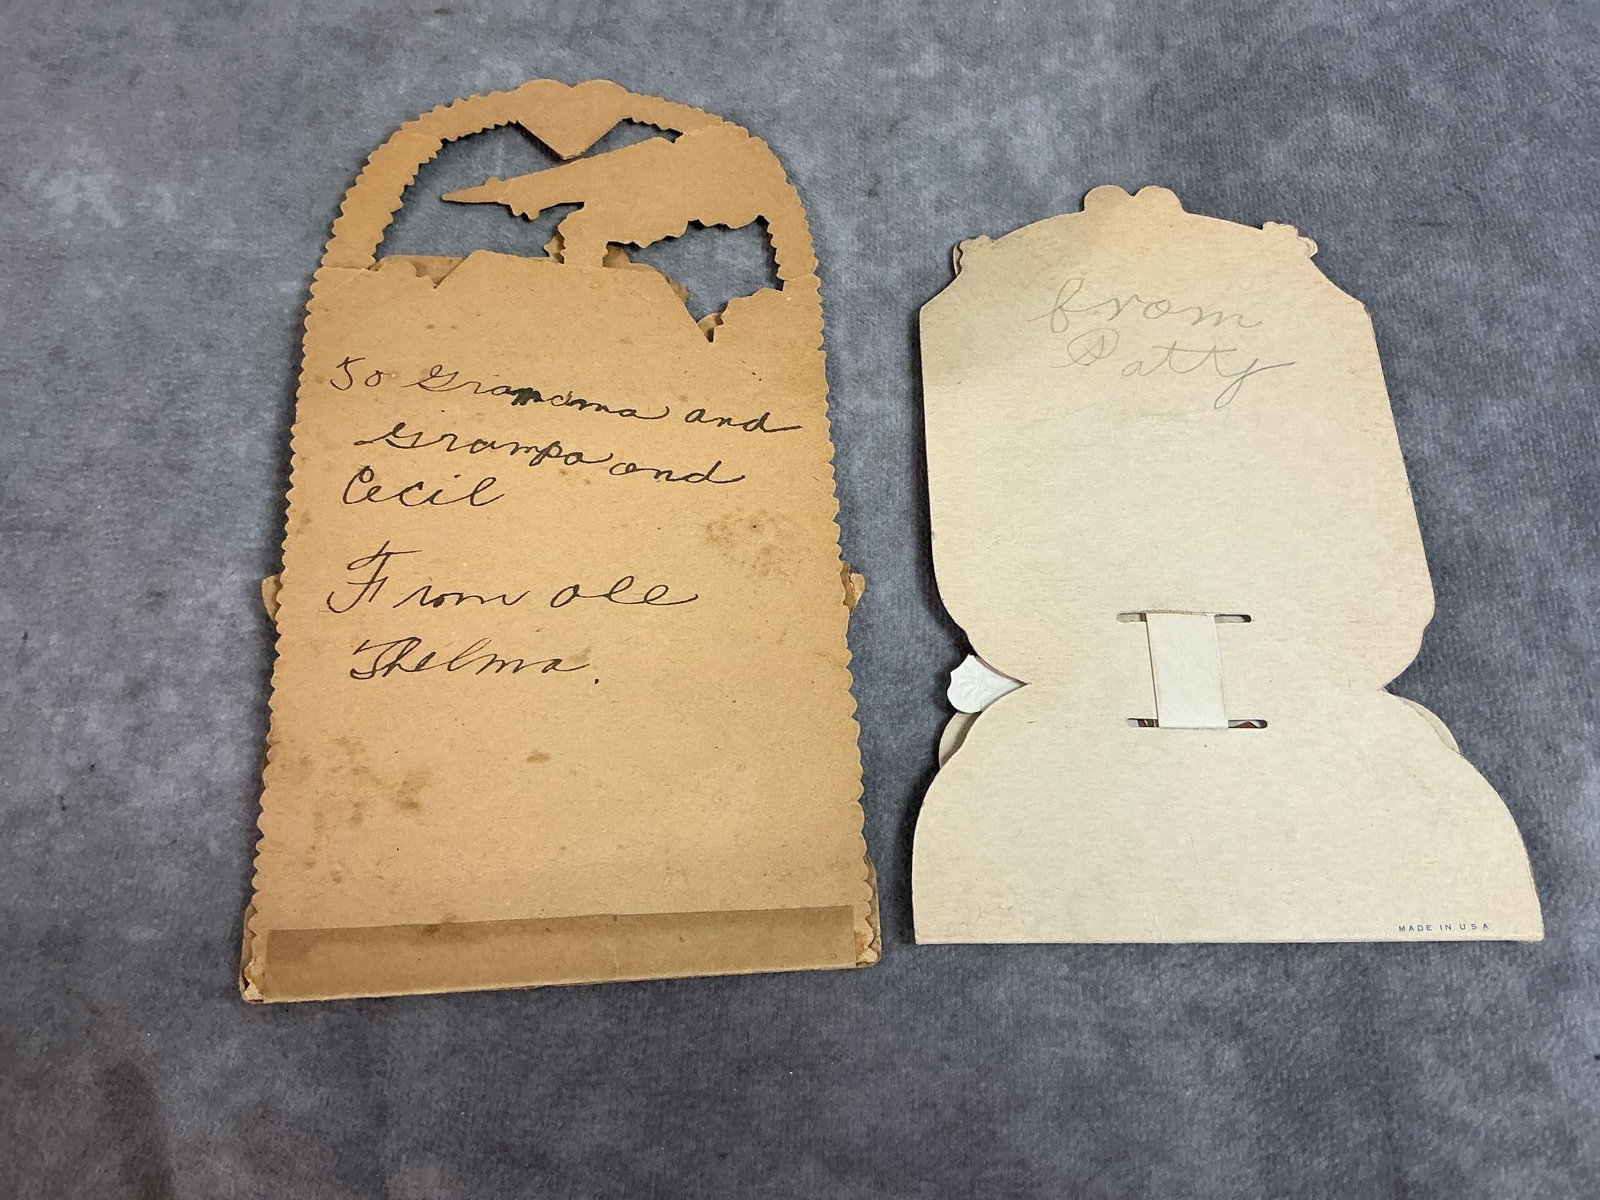 To Grandma and
Grampa and
Cecil
From all
Thelma.
from
Patty
MADE IN USA